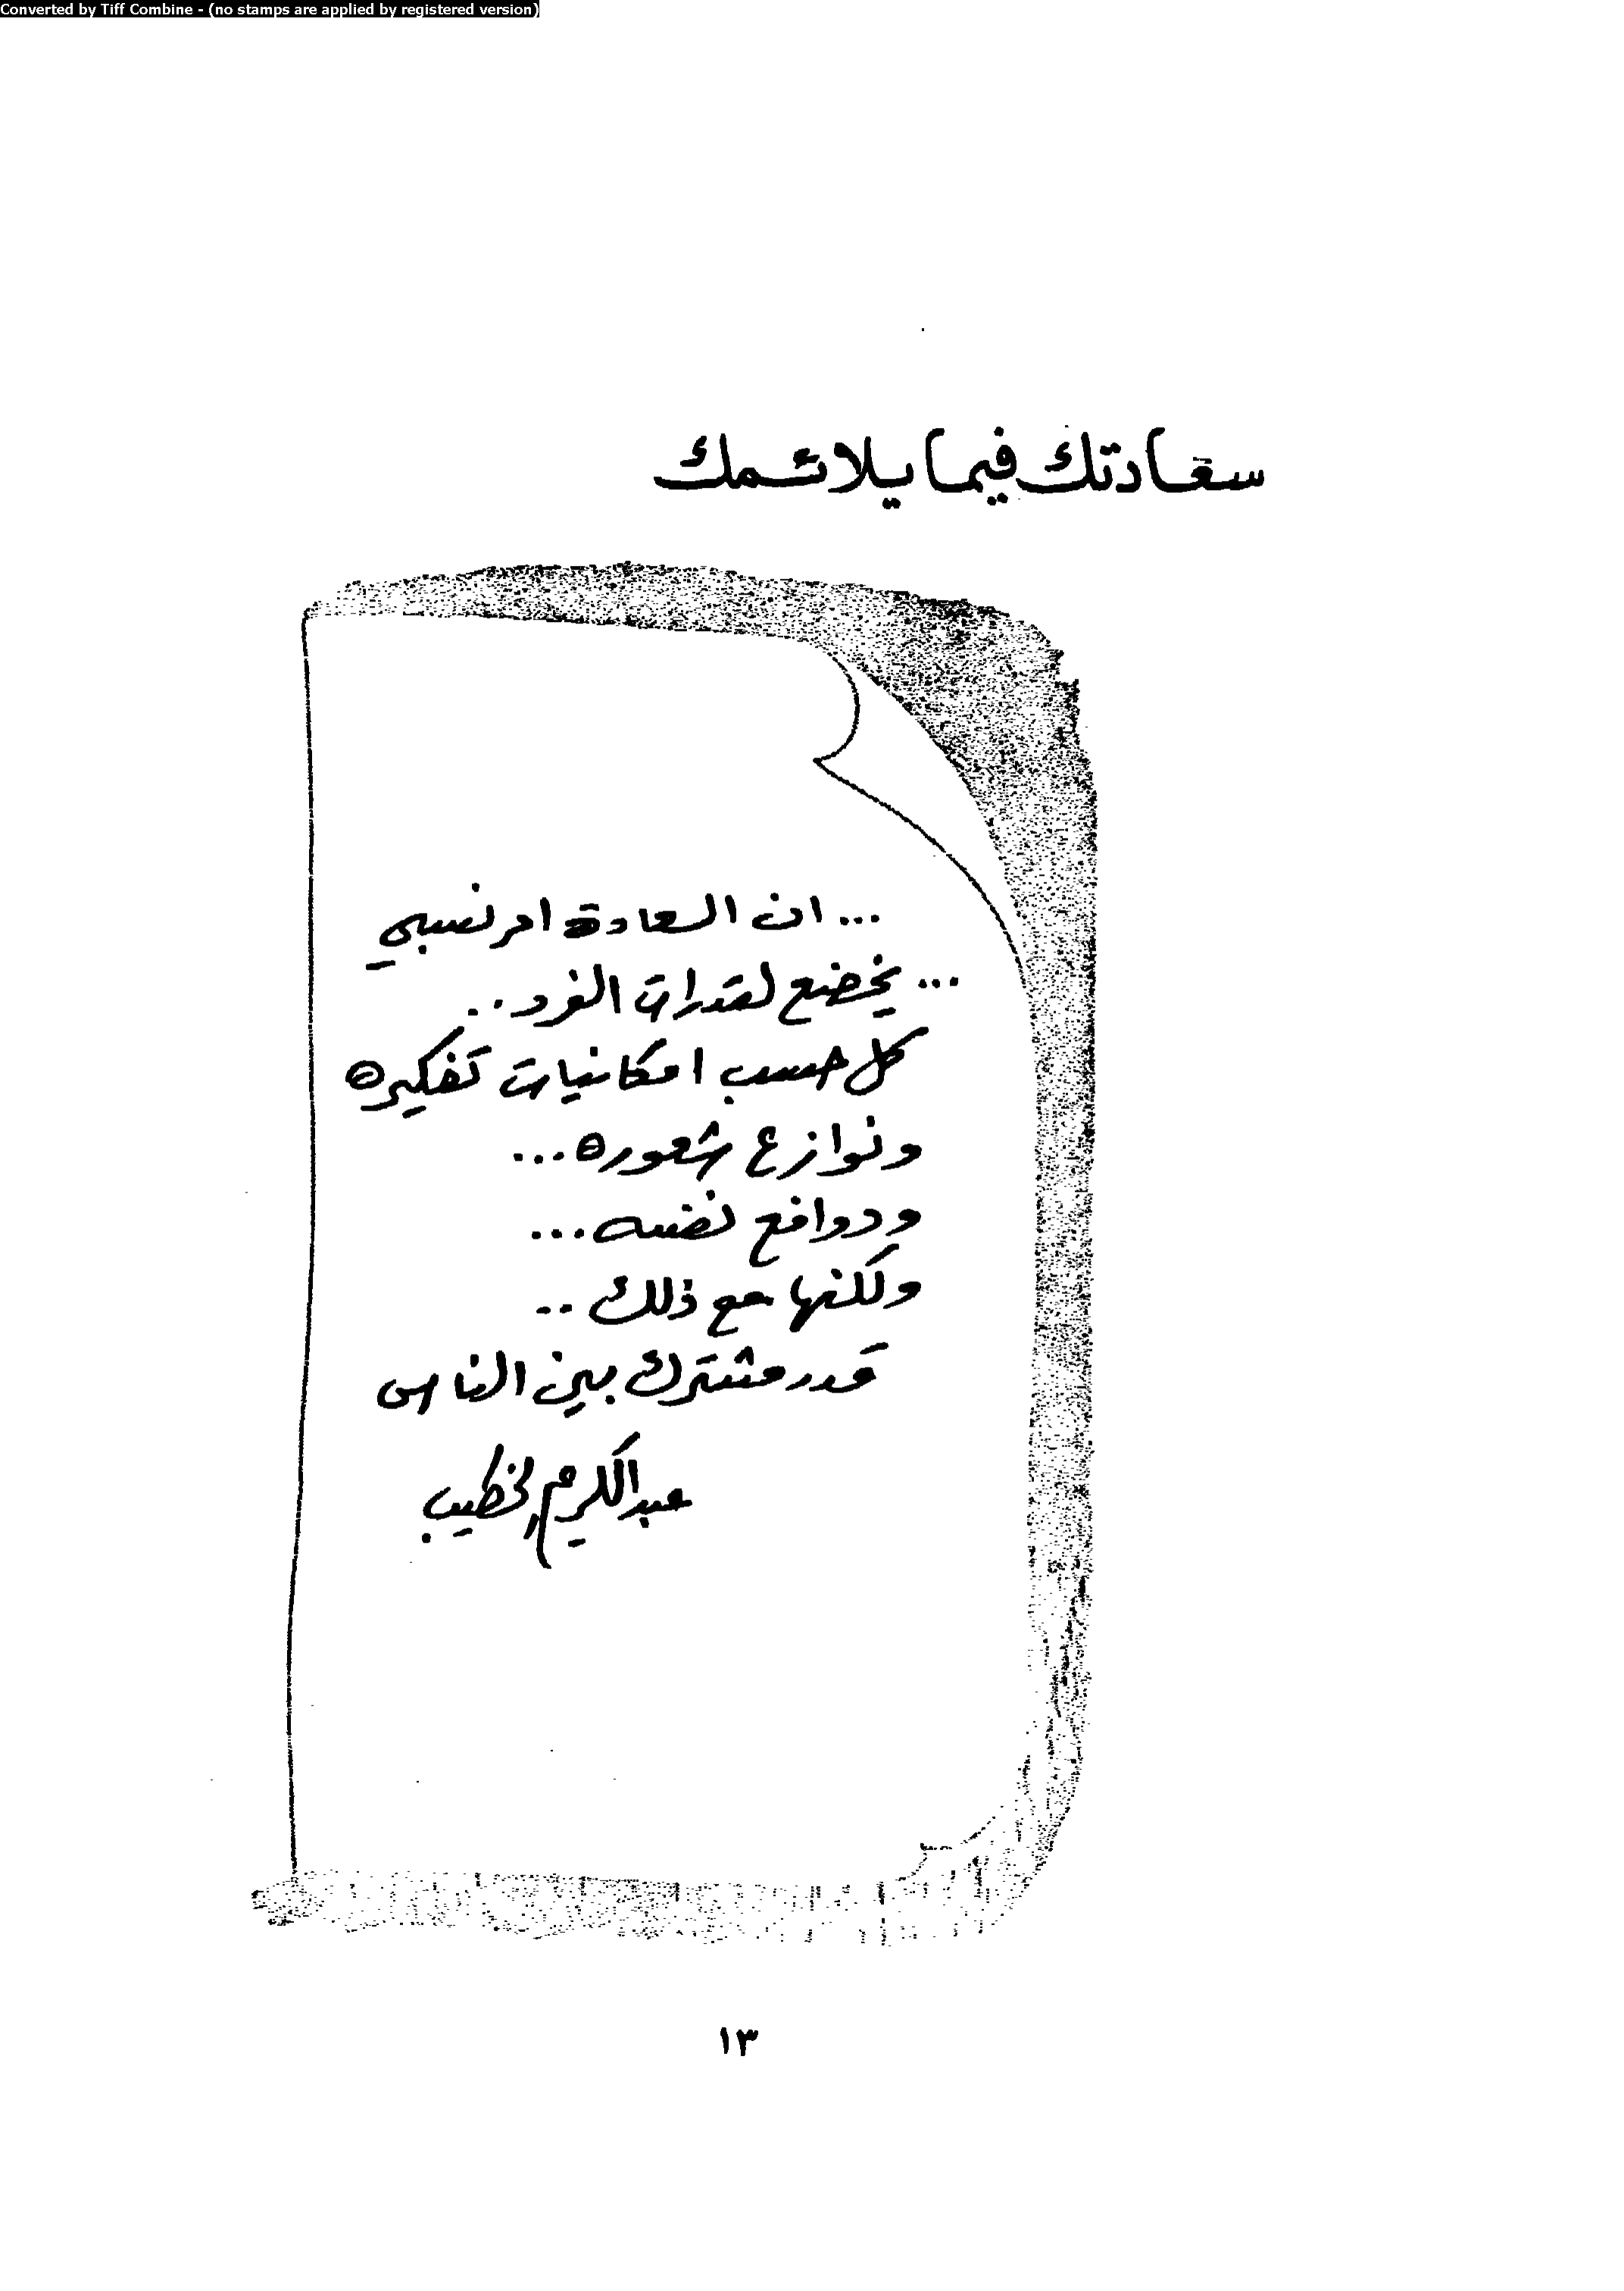 Converted by Tiff Combine - (no stamps are applied by registered version)
سعادتك فيما يلائمك
... ان السعادة امر نسبي
... يخضع لقدرات الفرد ..
كل حسب امكانيات تفكيره
ونوازع شعوره ...
ودوافع نفسه ...
ولكنها مع ذلك ..
قدر مشترك بين الناس
عبدالكريم الخطيب
١٣